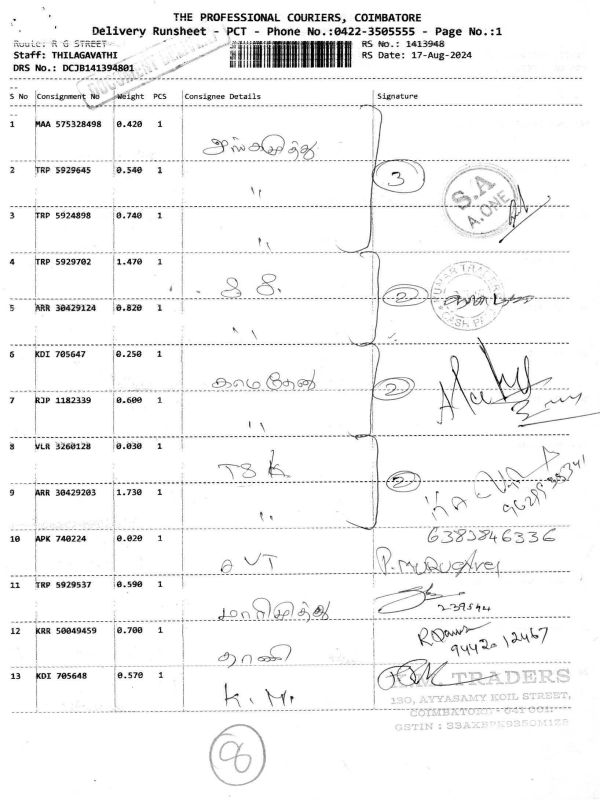 THE PROFESSIONAL COURIERS, COIMBATORE
Delivery Runsheet - PCT - Phone No.:0422-3505555 - Page No.:1
Route: R G STREET
RS No.: 1413948
Staff: THILAGAVATHI
RS Date: 17-Aug-2024
DRS No.: DCJB141394801
S No Consignment No Weight PCS Consignee Details Signature
1 MAA 575328498 0.420 1
2 TRP 5929645 0.540 1 "
3
S.A
A.ONE
3 TRP 5924898 0.740 1 "
4 TRP 5929702 1.470 1
2
CASH
5 ARR 30429124 0.820 1 "
6 KDI 705647 0.250 1 காமதேனு
2
7 RJP 1182339 0.600 1 "
8 VLR 3260128 0.030 1 TSK
2
9 ARR 30429203 1.730 1 "
10 APK 740224 0.020 1 AVT
6383846336
P. MURUGAVEL
11 TRP 5929537 0.590 1 மாரிமுத்து
239594
12 KRR 50049459 0.700 1 தரணி
9442012467
13 KDI 705648 0.570 1 K.M.
TRADERS
130, AYYASAMY KOIL STREET,
COIMBATORE - 641 001.
GSTIN : 33AXBPK9350M1Z8
8